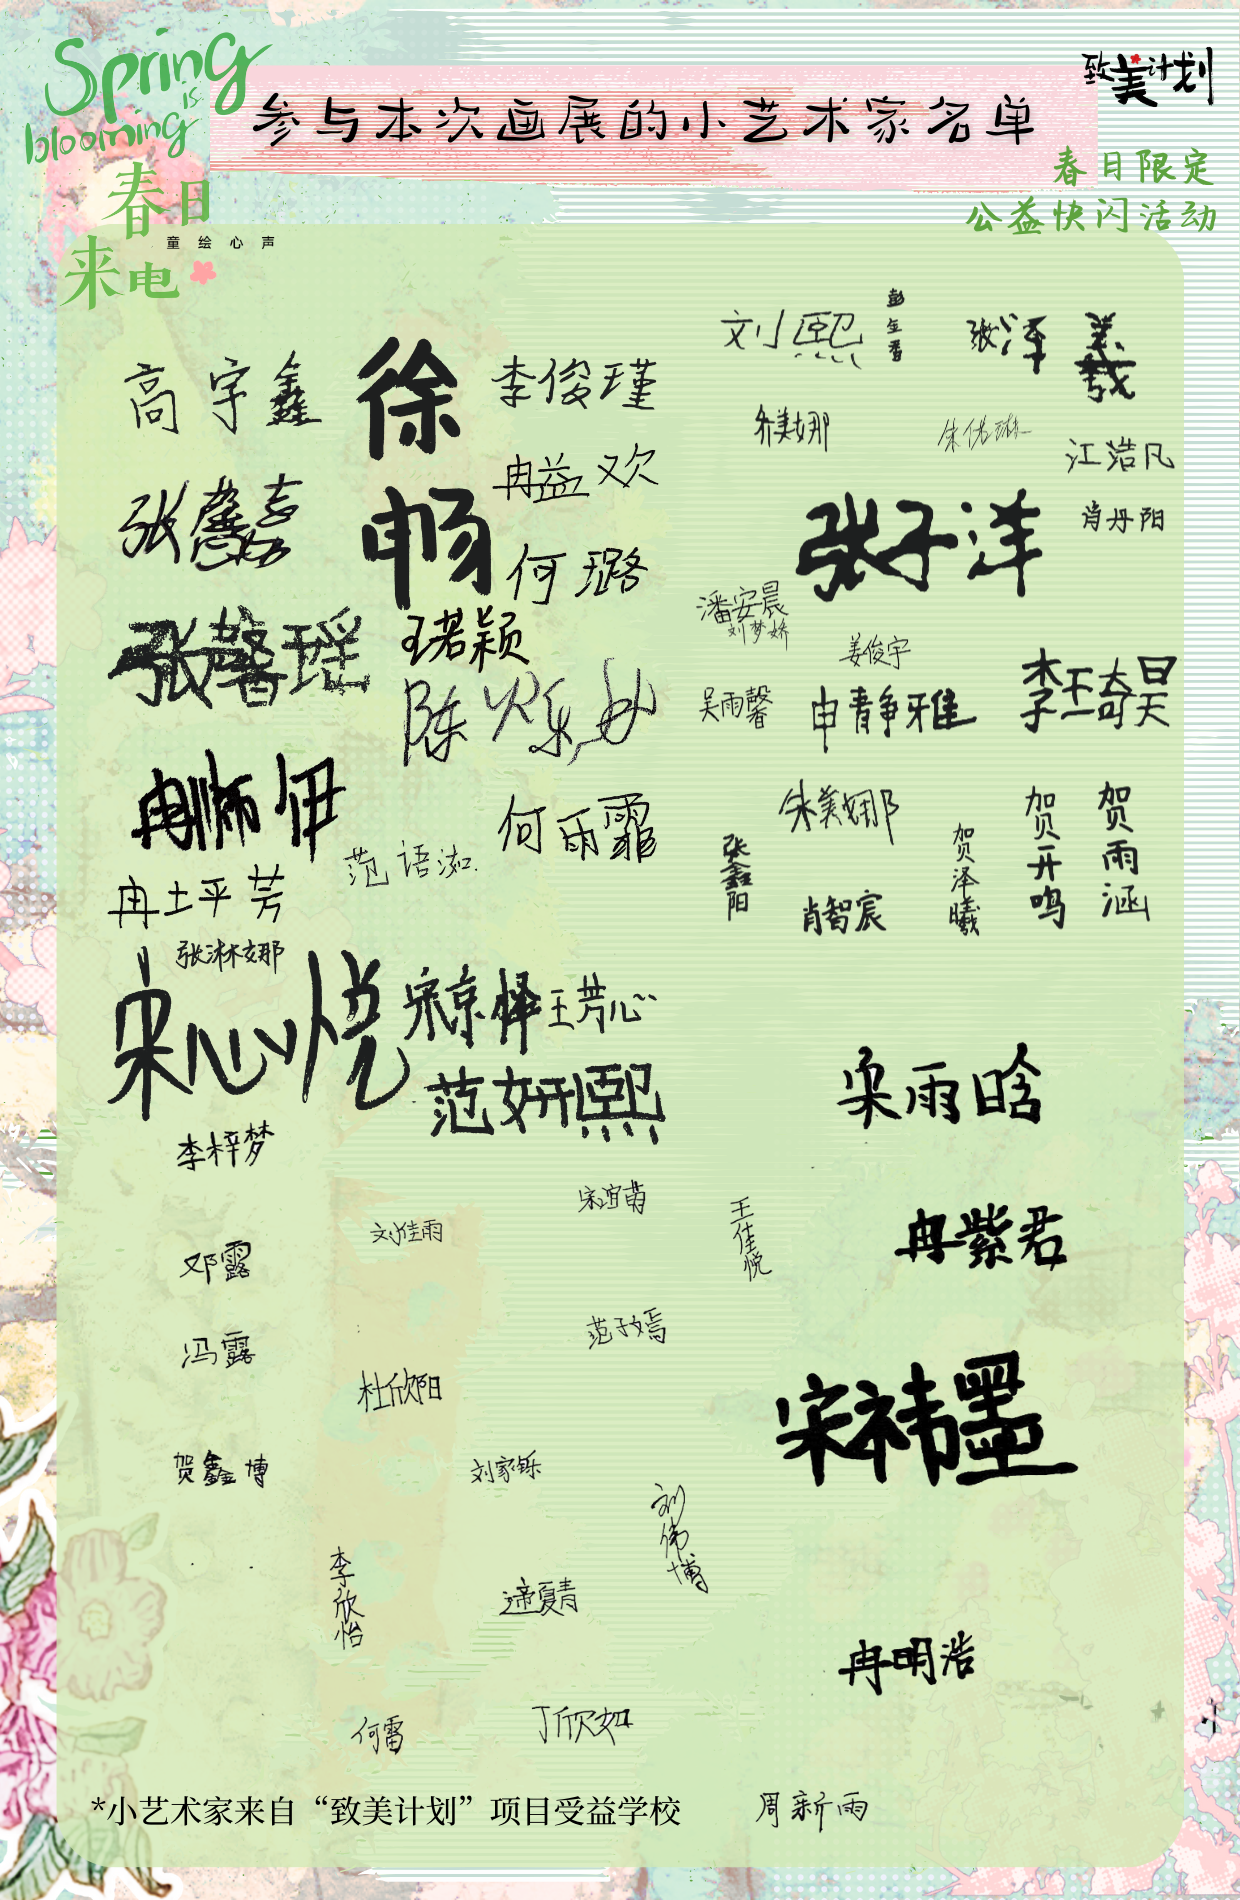 Spring
is
blooming
春日
来电
童绘心声
参与本次画展的小艺术家名单
致美计划
春日限定
公益快闪活动
高宇鑫
徐畅
李俊瑾
冉益欢
何璐
张馨瑶
珺颖
冉土平芳
张淋娜
宋心悦
宋京怿
王芳心
范妍熙
何雨霏
范语淑
刘熙
张泽羲
乔美娜
江浩凡
肖丹阳
张子洋
潘安晨
刘梦娇
姜俊宇
吴雨馨
申静雅
李王琦昊
朱美娜
张鑫阳
肖智宸
贺泽曦
贺开鸣
贺雨涵
宋雨晗
李梓梦
宋谊萌
刘佳雨
王佳悦
冉紫君
邓露
范子嫣
冯露
杜欣阳
宋祎墨
贺鑫博
刘家铄
刘伟博
李欣怡
冉明浩
何雷
丁欣如
周新雨
*小艺术家来自“致美计划”项目受益学校